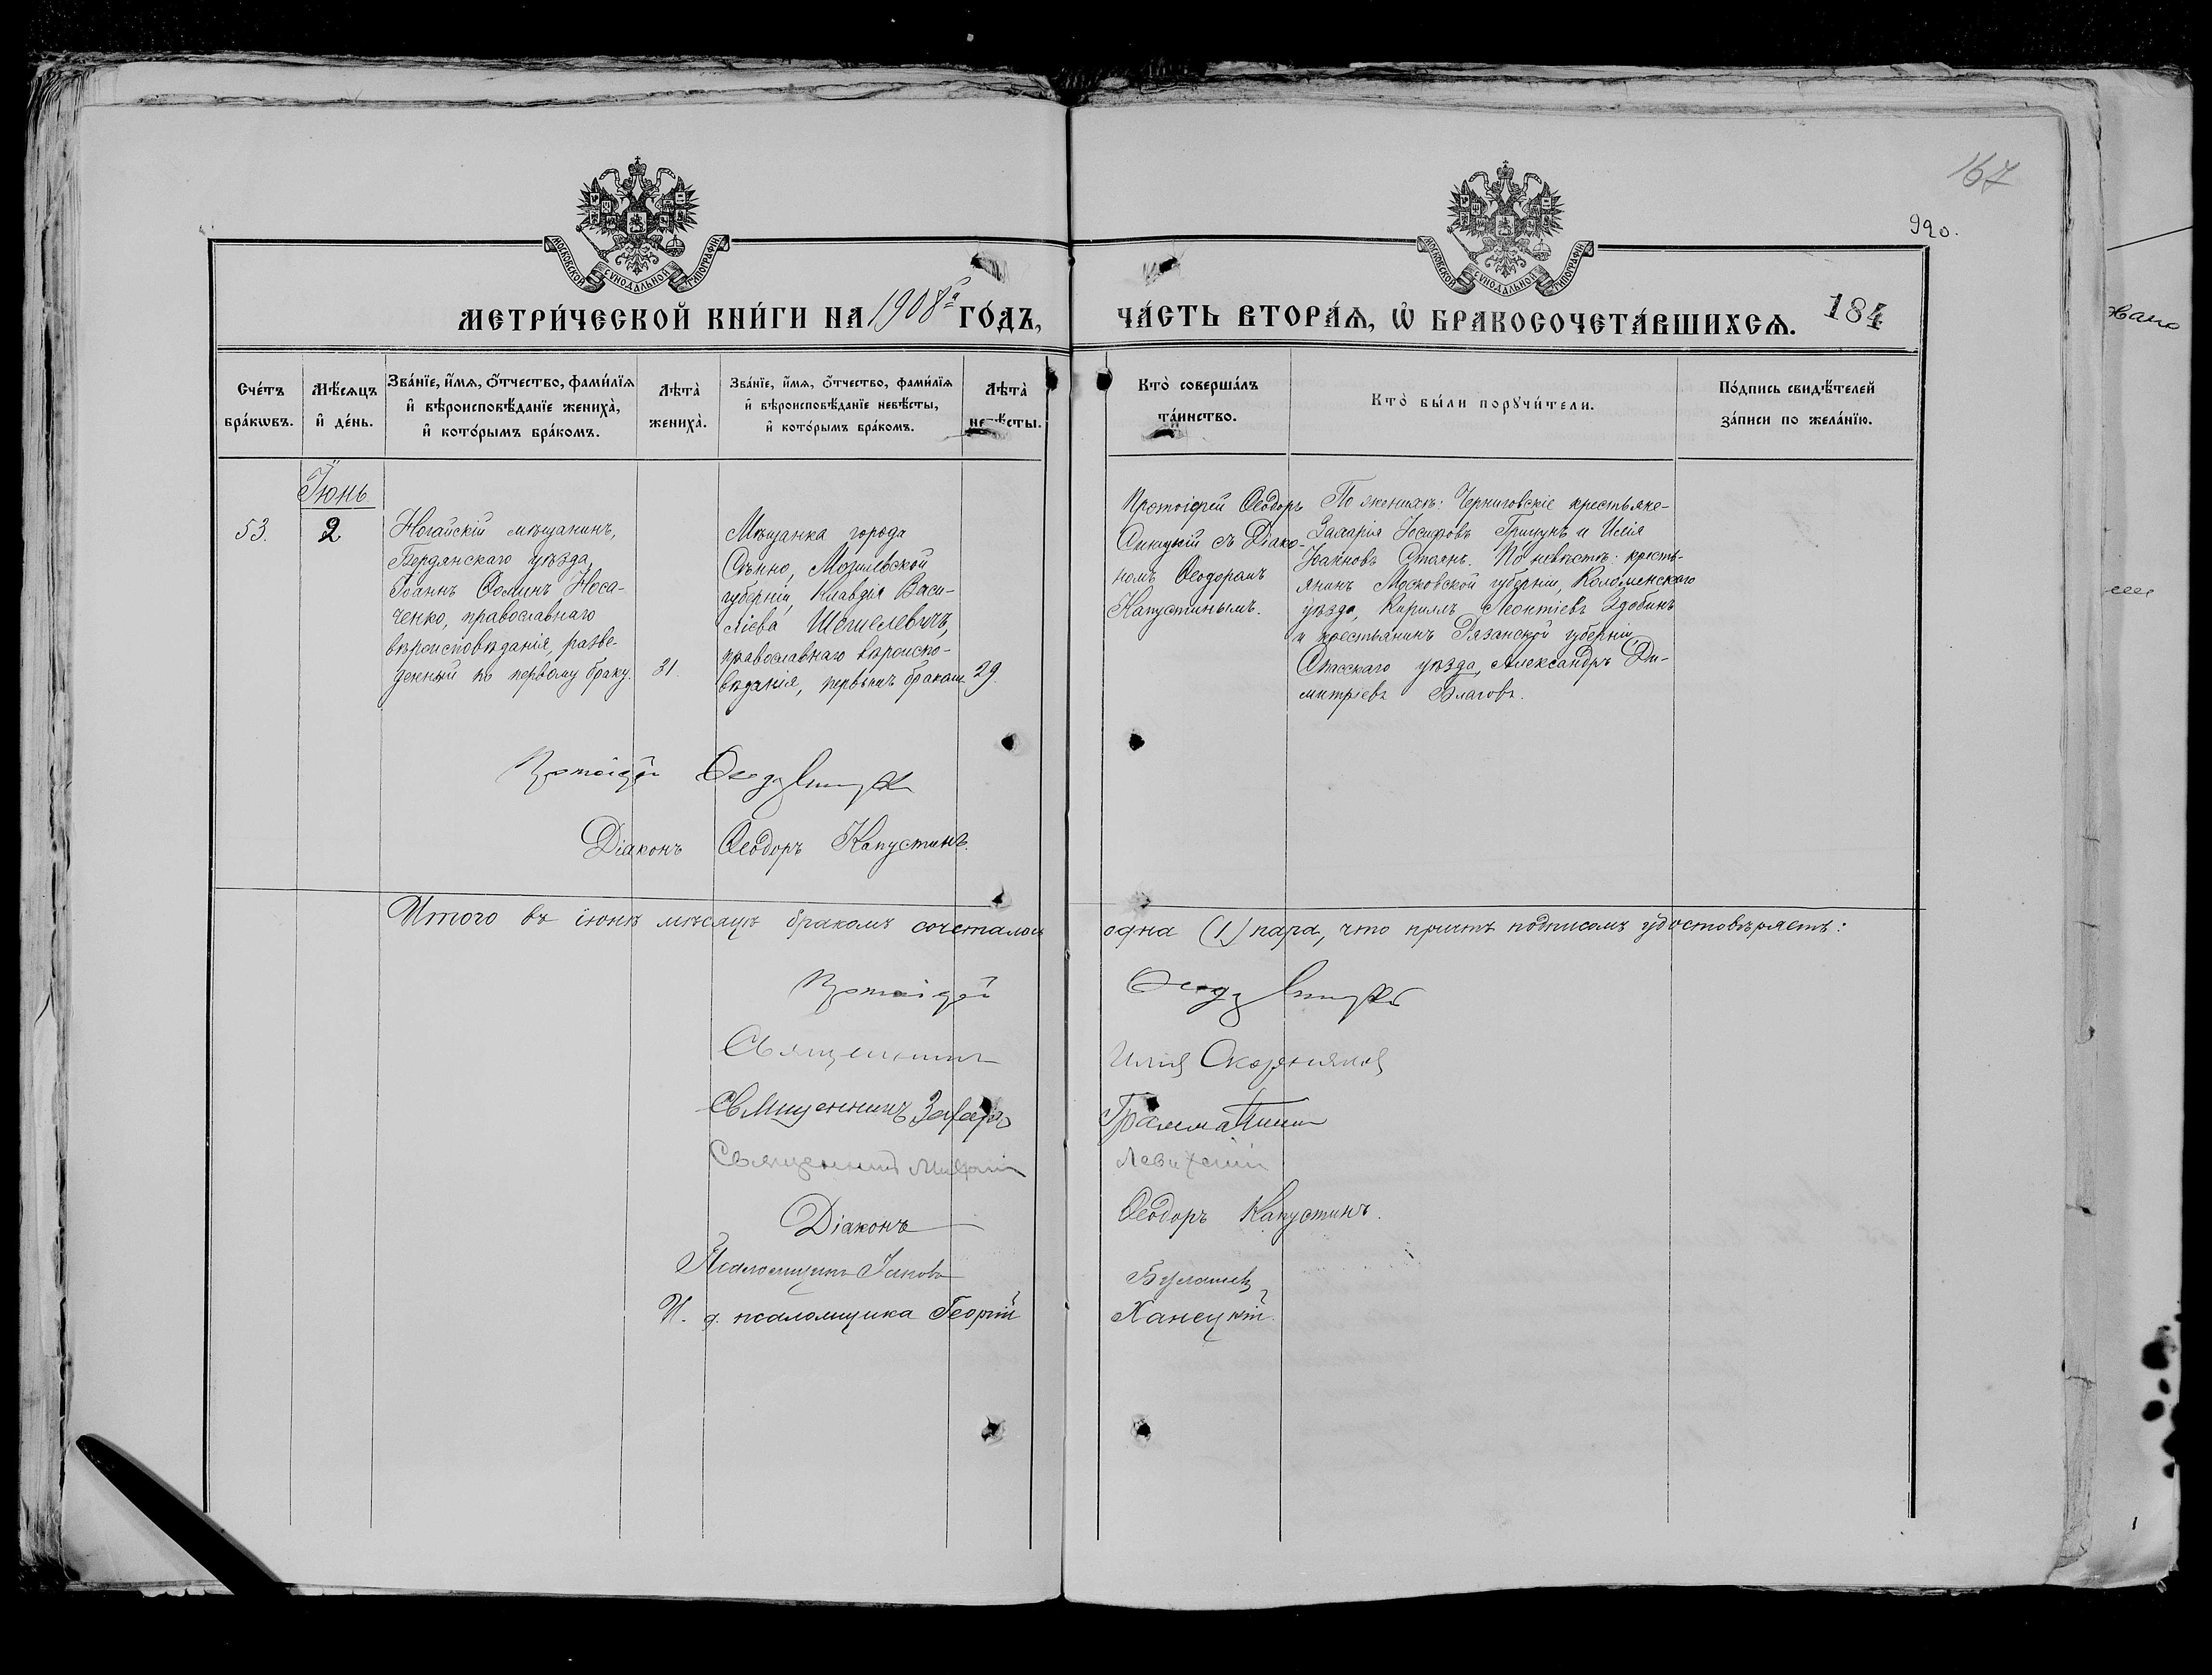 167
920.
МОСКОВСКОЙ СѴНОДАЛЬНОЙ ТИПОГРАФІИ
МОСКОВСКОЙ СѴНОДАЛЬНОЙ ТИПОГРАФІИ
МЕТРИ́ЧЕСКОЙ КНИ́ГИ НА 1908й ГО́ДЪ,
ЧА́СТЬ ВТОРА́Ѧ, Ѽ БРАКОСОЧЕТА́ВШИХСѦ.
184
Сче́тъ
бра́кѡвъ.
Мѣ́сѧцъ
и҆ де́нь.
Зва́нїе, и҆́мѧ, ѻ҆́тчество, фами́лїѧ
и҆ вѣроисповѣ́данїе жениха̀,
и҆ кото́рымъ бра́комъ.
Лѣта̀
жениха̀.
Зва́нїе, и҆́мѧ, ѻ҆́тчество, фами́лїѧ
и҆ вѣроисповѣ́данїе невѣ́сты,
и҆ кото́рымъ бра́комъ.
Лѣта̀
невѣ́сты.
Кто̀ соверша́лъ
та́инство.
Кто̀ бы́ли порꙋчи́тели.
По́дпись свидѣ́телей
за́писи по жела́нїю.
Іюнь
53.
2
Ногайскій мѣщанинъ,
Бердянскаго уѣзда,
Іоаннъ Ѳоминъ Носа-
ченко, православнаго
вѣроисповѣданія, разве-
денный по первому браку.
31.
Мѣщанка города
Сѣнно, Могилевской
губерніи, Клавдія Васи-
ліева Шешелевичъ,
православнаго вѣроиспо-
вѣданія, первымъ бракомъ.
29.
Протоіерей Ѳеодоръ
Синицкій съ Діако-
номъ Ѳеодоромъ
Капустинымъ.
По женихѣ: Черниговскіе крестьяне-
Захарія Іосифовъ Грицунъ и Илія
Іоанновъ Стоянъ. По невѣстѣ: кресть-
янинъ Московской губерніи, Коломенскаго
уѣзда, Кириллъ Леонтіевъ Здобинъ
и крестьянинъ Рязанской губерніи
Спасскаго уѣзда, Александръ Ди-
митріевъ Благовъ.
Протоіерей Ѳеодоръ Синицкій
Діаконъ Ѳеодоръ Капустинъ.
Итого въ іюнѣ мѣсяцѣ бракомъ сочеталась одна (1) пара, что причтъ подписомъ удостовѣряетъ:
Протоіерей Ѳеодоръ Синицкій
Священникъ Илія Скорняковъ
Священникъ Захарій Грамматинъ
Священникъ Михаилъ
Діаконъ Ѳеодоръ Капустинъ.
Псаломщикъ Іаковъ Булашевъ
И. д. псаломщика Георгій Ханецкій.